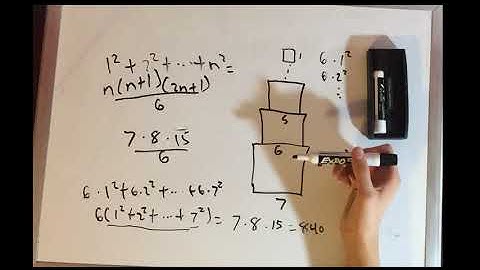 1² + 2² + ... + n² =
n(n+1)(2n+1)
6
7 · 8 · 15
6
6 · 1² + 6 · 2² + ... + 6 · 7²
6(1² + 2² + ... + 7²) = 7 · 8 · 15 = 840
1
5
6
7
6 · 1²
6 · 2²
⋮
EXPO